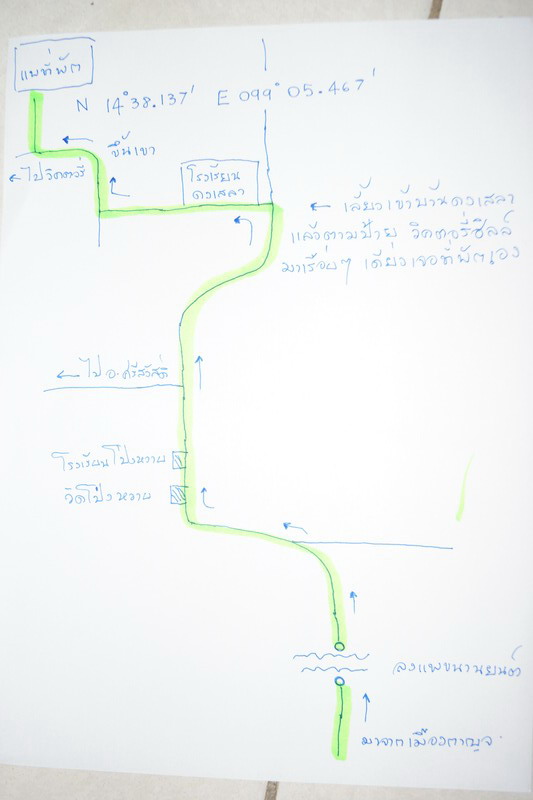 แพที่พัก
N 14°38.137' E 099°05.467'
ขึ้นเขา
← ไปวิคตอรี่
โรงเรียน
ดงเสลา
← เลี้ยวเข้าบ้านดงเสลา
แล้วตามป้าย วิคตอรี่ฮิลล์
มาเรื่อยๆ เดี๋ยวเจอที่พักเอง
← ไป อ.ศรีสวัสดิ์
โรงเรียนโป่งหวาย
วัดโป่งหวาย
ลงแพขนานยนต์
มาจากเมืองกาญจ.